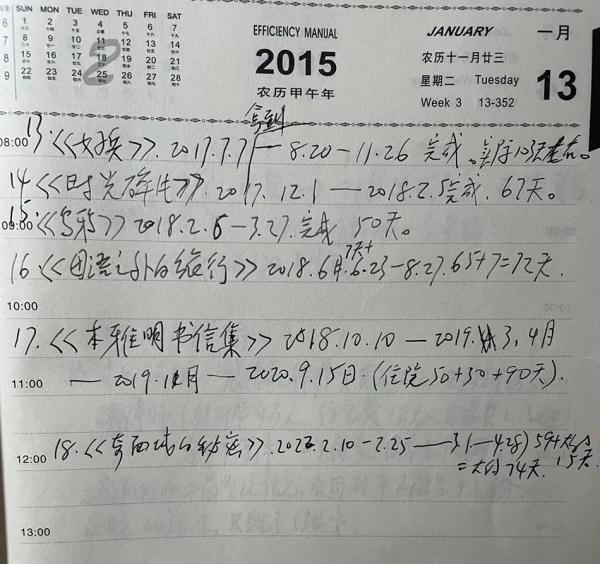 SUN MON TUE WED THU FRI SAT
6 1 2 3 4 5 6 7
7 8 9 10 11 12 13 14
8 15 16 17 18 19 20 21
9 22 23 24 25 26 27 28
EFFICIENCY MANUAL
2015
农历甲午年
JANUARY 一月
农历十一月廿三
星期二 Tuesday
Week 3 13-352
13
拿到
08:00 13.<<女孩>>. 2017.7.7 8.20-11.26 完成。实际103天左右。
14<<时光碎片>>. 2017.12.1 — 2018.2.5完成. 67天。
09:00 15.<<乌鸦>> 2018.2.6-3.27.完成 50天。
7天+
16.<<母语之外的旅行>> 2018.6月.6.23-8.27. 65+7=72天.
10:00
17.<<本雅明书信集>> 2018.10.10 — 2019. 3,4月
11:00 — 2019.11月 — 2020.9.15日.(住院50+30+90天).
12:00 18.<<的秘密>>.2022.2.10-2.25 — 3.1-4.28) 59天
=大约74天. 15天.
13:00